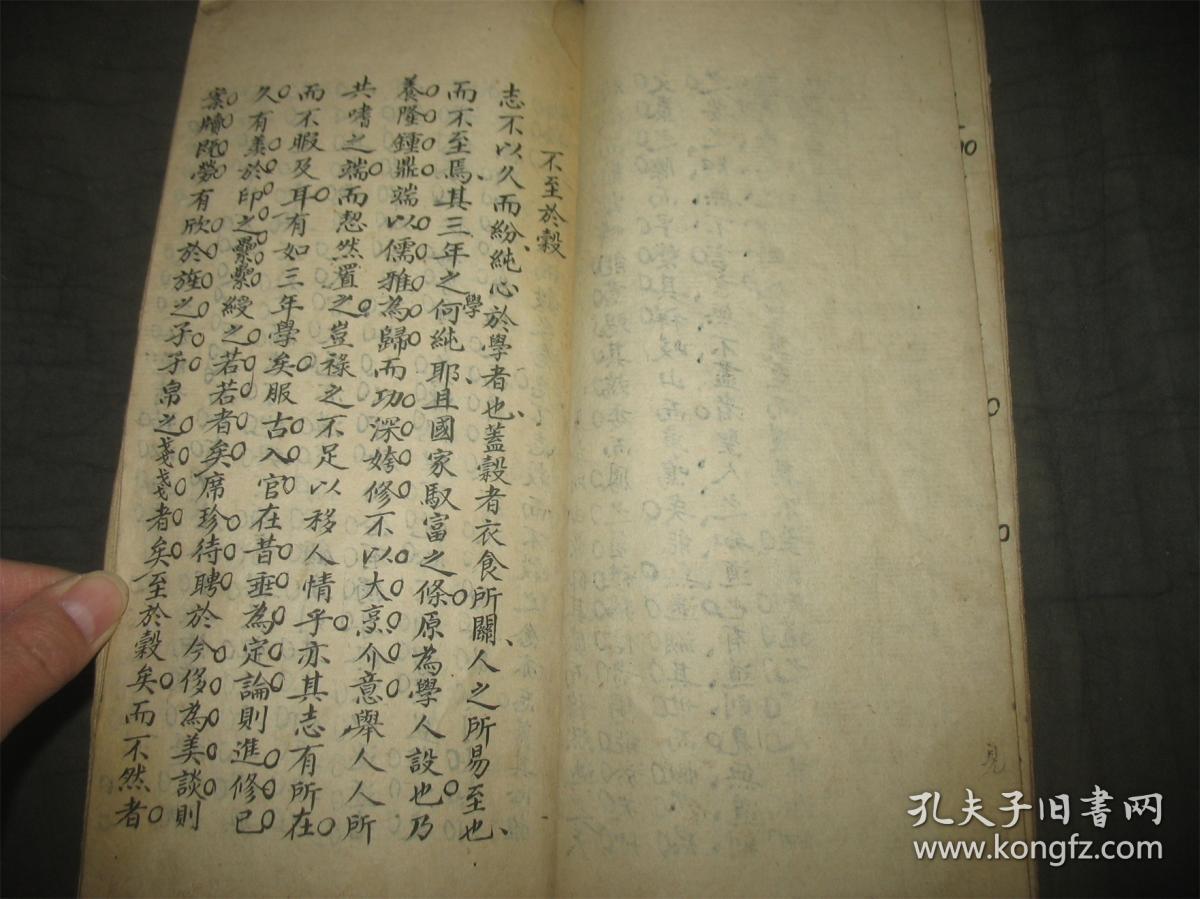 不至於穀
志不以久而紛純心於學者也蓋穀者衣食所關人之所易至也
而不至焉其三年之學何純耶且國家馭富之條原為學人設也乃
養隆鍾鼎端以儒雅為歸而功深姱修不以大烹介意舉人人所
共嗜之端而恝然置之豈祿之不足以移人情乎亦其志有所在
而不暇及耳有如三年學矣服古入官在昔垂為定論則進修已
久有羨於印之纍纍綬之若若者矣席珍待聘於今侈為美談則
案牘既勞有欣於旌之孑孑帛之戔戔者矣至於穀矣而不然者
見
孔夫子旧書网
www.kongfz.com